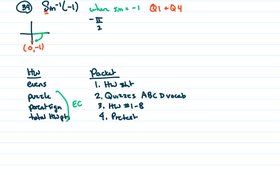 39 Sin⁻¹(-1) where sin = -1 Q1 + Q4
-π/2
(0,-1)
HW Packet
evens 1. HW sht
puzzle 2. Quizzes ABCD vocab
percent sign EC 3. HW #1-8
total HW pts 4. Pretest